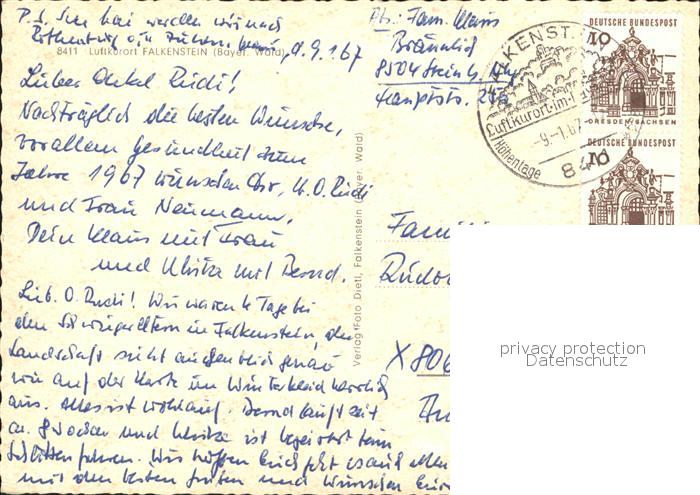 P.S. Hier bei werden wir nach
Rothenburg o/T fahren. Klaus, d. 9.1.67
8411 Luftkurort FALKENSTEIN (Bayer. Wald)
Lieber Onkel Rudi!
Nachträglich die besten Wünsche,
vorallem Gesundheit zum
Jahre 1967 wünschen Dir, lb. O. Rudi
und Frau Neumann,
Dein Klaus mit Frau
und Ulrike mit Bernd.
Lieb. O. Rudi! Wir waren 4 Tage bei
den Schwiegereltern in Falkenstein, die
Landschaft sieht augenblickl. genau
wie auf der Karte im Winterkleid herrlich
aus. Alles ist wohlauf. Bernd läuft seit
ca. 8 Wochen und Ulrike ist begeistert beim
Schlittenfahren. Wir hoffen Euch geht es auch allen
mit den besten Grüßen und Wünschen
Verlag Foto Dietl, Falkenstein (Bayer. Wald)
Abs.: Fam. Klaus
Bräunlich
8504 Stein b.
Hauptstr.
FALKENST
Luftkurort-im-
-9.-1.67
Höhentage
8411
DEUTSCHE BUNDESPOST
10
DRESDEN/SACHSEN
DEUTSCHE BUNDESPOST
10
Famili
Rudo
X 806
privacy protection
Datenschutz